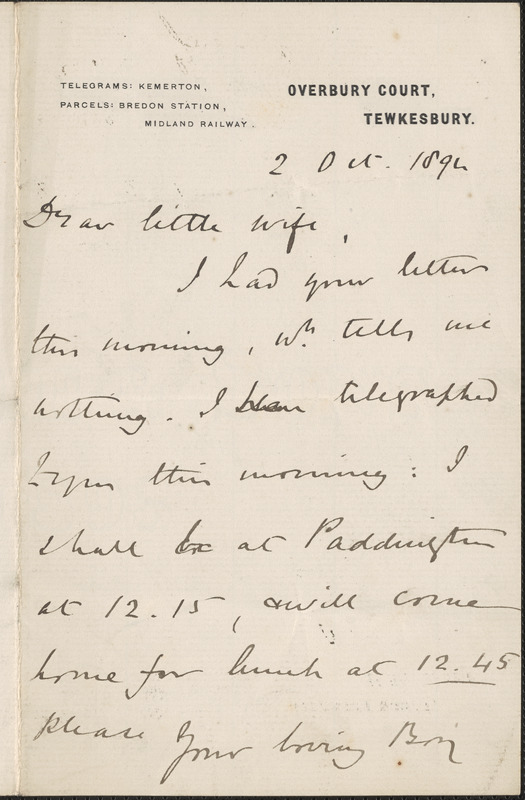 TELEGRAMS: KEMERTON,
PARCELS: BREDON STATION,
MIDLAND RAILWAY.
OVERBURY COURT,
TEWKESBURY.
2 Oct. 189
Dear little wife,
I had your letter
this morning, wh. tells me
nothing. I telegraphed
this morning: I
shall be at Paddington
at 12.15, & will come
home for lunch at 12.45
please Your loving Boy